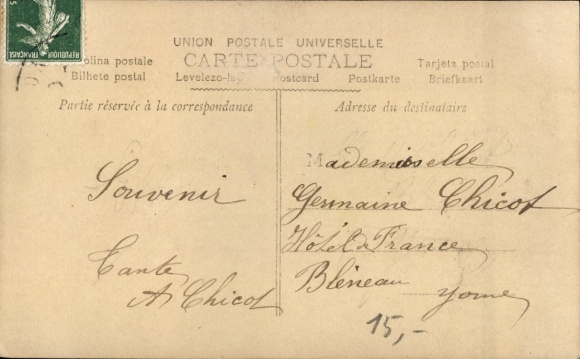 5
REPUBLIQUE FRANÇAISE
UNION POSTALE UNIVERSELLE
CARTE POSTALE
olina postale
Tarjeta postal
Bilhete postal Levelezo-la Postcard Postkarte Briefkaart
Partie réservée à la correspondance
Adresse du destinataire
Souvenir
Tante
A Chicot
Mademoiselle
Germaine Chicot
Hôtel de France
Bléneau
Yonne
15,-